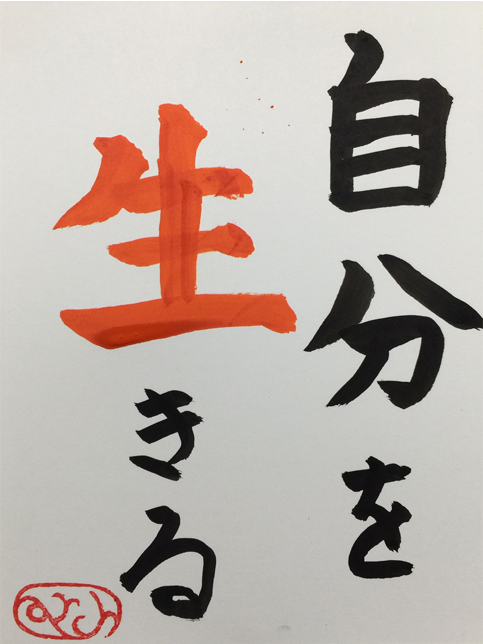 自分を
生きる